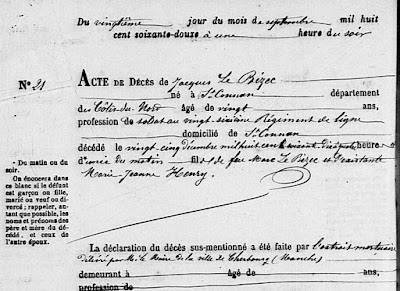 Du vingtième jour du mois de septembre mil huit
cent soixante-douze à une heure du soir
No 21
ACTE DE DÉCÈS de Jacques Le Bizec
né à St Connan département
des Côtes-du-Nord âgé de vingt ans,
profession de soldat au vingt sixième Régiment de ligne
domicilié de St Connan
décédé le vingt cinq décembre mil huit cent soixante dix à heure
du matin fils de feu Marc Le Bizec et d'existante
Marie Jeanne Henry.
Du matin ou du
soir.
On énoncera dans
ce blanc si le défunt
est garçon ou fille,
marié ou veuf ou di-
vorcé; rappeler, au-
tant que possible, les
noms et prénoms des
père et mère du décé-
dé, et ceux de
l'autre époux.
La déclaration du décès sus-mentionné a été faite par l'extrait mortuaire
délivré par M. le Maire de la ville de Cherbourg (Manche)
demeurant à âgé de ans,
profession de